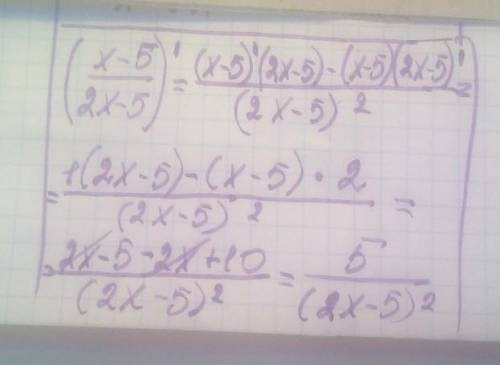 ((x-5)/(2x-5))' = ((x-5)'(2x-5)-(x-5)(2x-5)')/(2x-5)² =
= (1(2x-5)-(x-5)·2)/(2x-5)² =
= (2x-5-2x+10)/(2x-5)² = 5/(2x-5)²